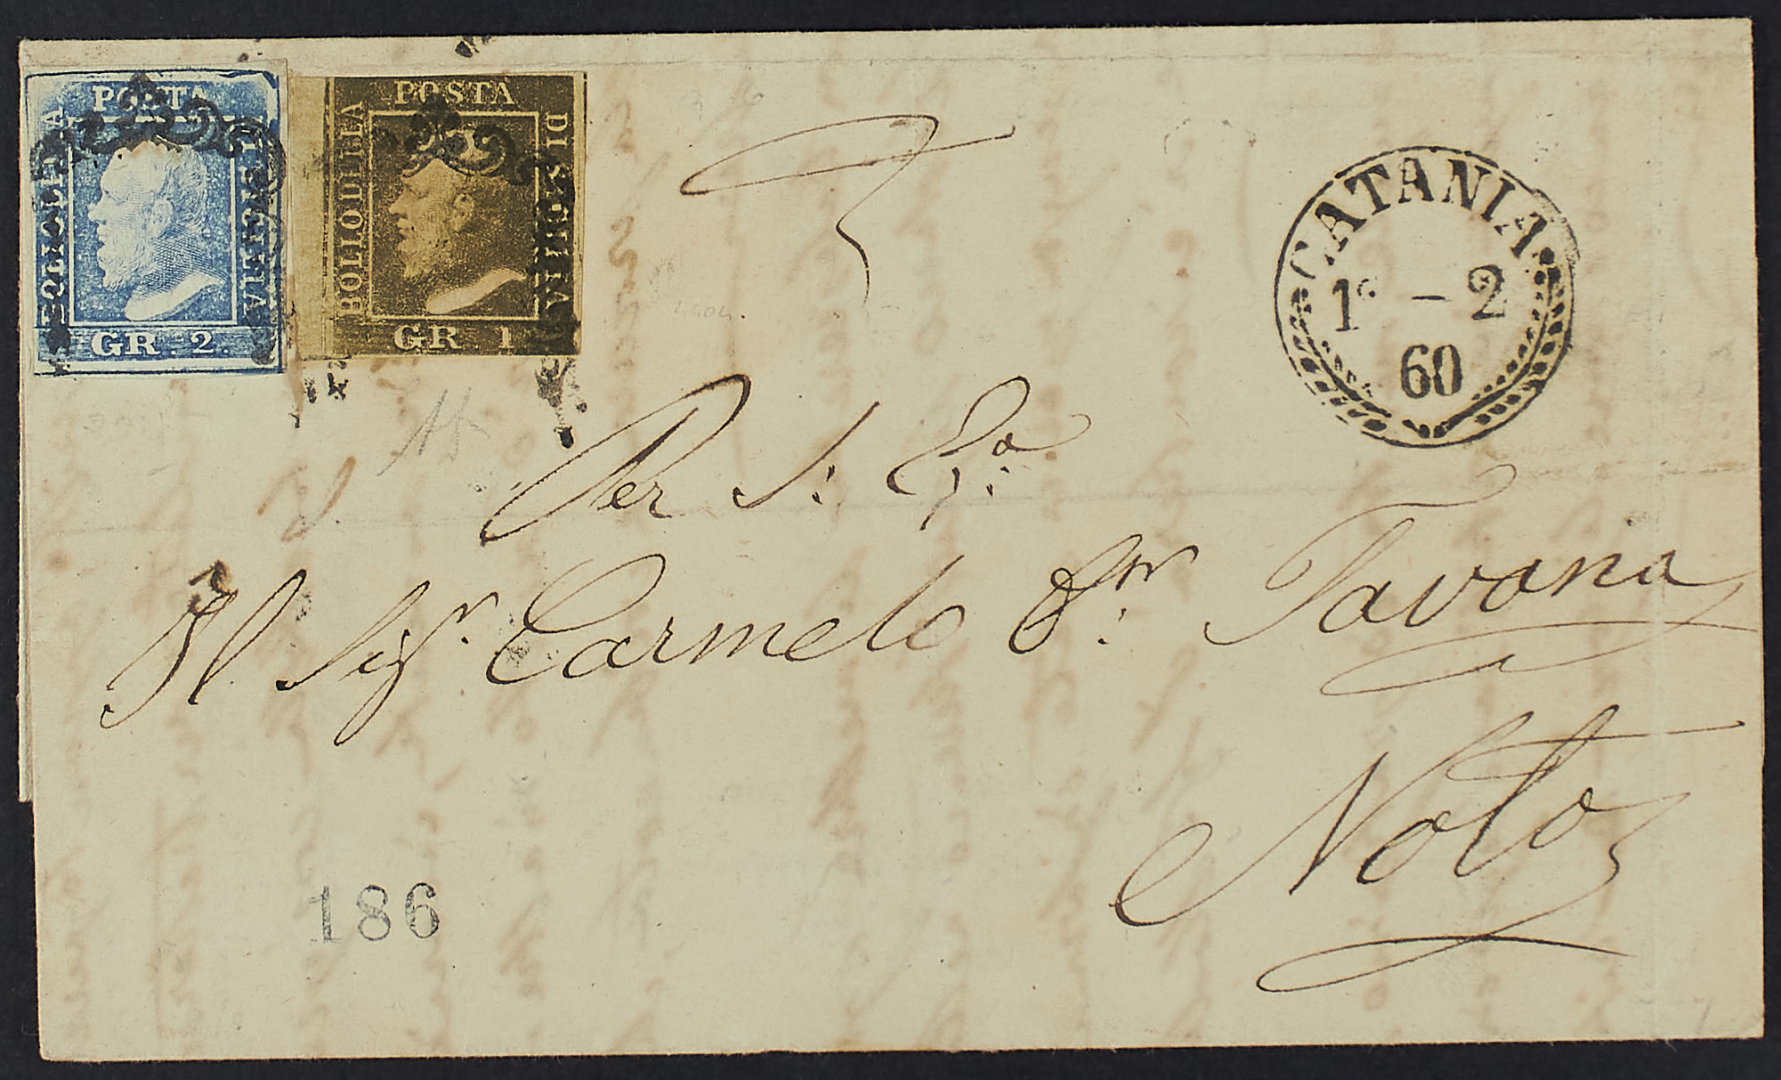 POSTA
BOLLO DELLA
GR. 2.
POSTA
BOLLO DELLA
DI SICILIA
GR. 1
CATANIA
1º - 2
60
3
Per S: Pª:
Al Sigr. Carmelo Br: Tavana
Noto
186